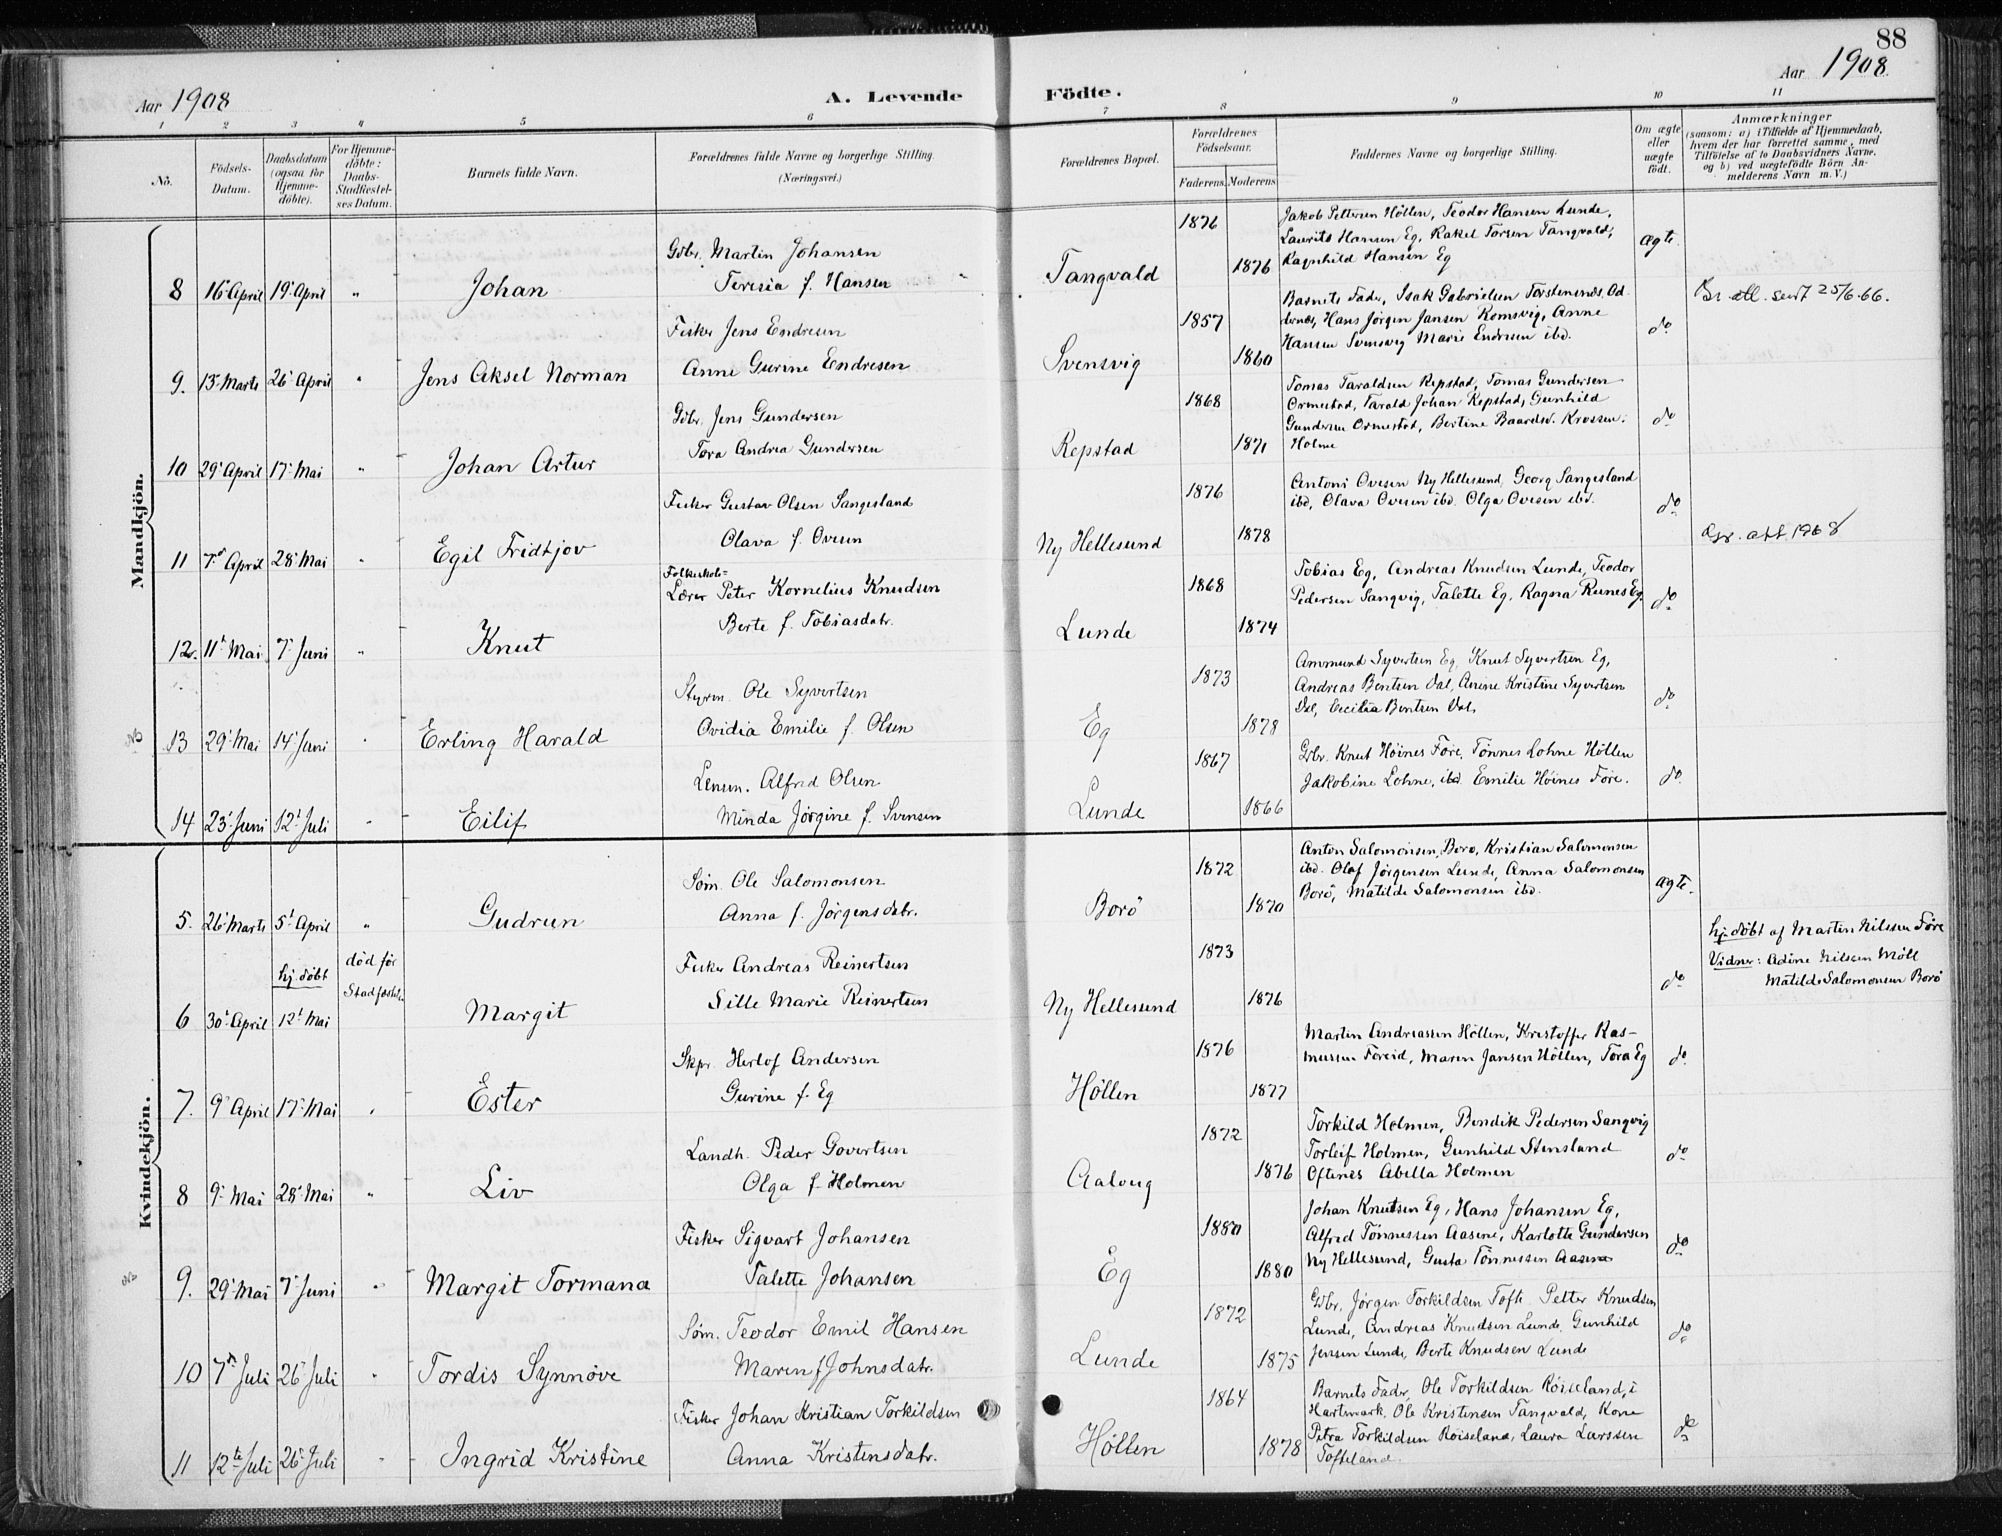 88
Aar 1908
A. Levende
Födte.
Aar 1908.
1 2 3 4 5 6 7 8 9 10 11
Nò.
Födsels-
Datum.
Daabsdatum
(ogsaa for
Hjemme-
döbte).
For Hjemme-
döbte:
Daabs-
Stadfæstel-
ses Datum.
Barnets fulde Navn.
Forældrenes fulde Navne og borgerlige Stilling.
(Næringsvei.)
Forældrenes Bopæl.
Forældrenes
Födselsaar.
Faderens. Moderens.
Faddernes Navne og borgerlige Stilling.
Om ægte
eller
uægte
födt.
Anmærkninger
(saasom: a) i Tilfælde af Hjemmedaab,
hvem der har forrettet samme, med
Tilföielse af to Daabsvidners Navne.
og b) ved uægtefödte Börn An-
melderens Navn m. V.)
Mandkjön.
8 16 April 19 April " Johan
Gdbr. Martin Johansen
Teresia f. Hansen
Tangvald
1876
1876
Jakob Pettersen Höllen, Teodor Hansen Lunde,
Laurits Hansen Eg, Rakel Torsen Tangvald,
Ragnhild Hansen Eg
ægte.
9. 13 Marts 26 April " Jens Aksel Norman
Fisker Jens Endresen
Anne Gurine Endresen
Svensvig
1857
1860
Barnets Fader, Isak Gabrielsen Torstensnes, Od-
dernes, Hans Jörgen Jansen Komsvig, Anne
Hansen Svensvig Marie Endresen ibd.
do
sendt 25/6.66.
10 29 April 17 Mai " Johan Artur
Gdbr. Jens Gundersen
Tora Andrea Gundersen
Repstad
1868
1871
Tomas Taraldsen Repstad, Tomas Gundersen
Ormestad, Tarald Johan Repstad, Gunhild
Gundersen Ormestad, Bertine Baardsd. Krossen.
Holme
do
11 7 April 28 Mai " Egil Fridtjov
Fisker Gustav Olsen Sangesland
Olava f. Ovesen
Ny Hellesund
1876
1878
Antoni Ovesen Ny Hellesund, Georg Sangesland
ibd, Olava Ovesen ibd. Olga Ovesen ibd.
do
att 1968
12. 11 Mai 7 Juni " Knut
Folkeskole=
Lærer Peter Kornelius Knudsen
Berte f. Tobiasdatr.
Lunde
1868
1874
Tobias Eg, Andreas Knudsen Lunde, Teodor
Pedersen Sangvig, Talette Eg, Ragna Runes Eg.
do
13 29 Mai 14 Juni " Erling Harald
Styrm. Ole Syvertsen
Ovidia Emilie f. Olsen
Eg
1873
1878
Ammund Syvertsen Eg, Knut Syvertsen Eg,
Andreas Bentsen Val, Anine Kristine Syvertsen
Val, Cecilia Bentsen Val.
do
14 23 Juni 12 Juli " Eilif
Lensm. Alfred Olsen
Minda Jörgine f. Svensen
Lunde
1867
1866
Gdbr. Knut Höines Före, Tönnes Lohne Höllen
Jakobine Lohne, ibd. Emilie Höines Före.
do
Kvindekjön.
5. 26 Marts 5 April " Gudrun
Söm. Ole Salomonsen
Anna f. Jörgensdatr.
Borö
1872
1870
Anton Salomonsen, Borö, Kristian Salomonsen
ibd. Olaf Jörgensen Lunde, Anna Salomonsen
Borö, Matilde Salomonsen ibd.
ægte.
6 30 April
hj. döbt
12 Mai
död før
Stadfæstel.
Margit
Fisker Andreas Reinertsen
Sille Marie Reinertsen
Ny Hellesund
1873
1876
do
hj. döbt af Martin Nilssen Före
Vidner: Adine Nilsen Möll
Matilde Salomonsen Borö
7. 9 April 17 Mai " Ester
Skpr. Herlof Andersen
Gurine f. Eg
Höllen
1876
1877
Martin Andreassen Höllen, Kristoffer Ras-
mussen Foreid, Maren Jansen Höllen, Tora Eg
do
8 9 Mai 28 Mai " Liv
Landh. Peder Govertsen
Olga f. Holmen
Aaloug
1872
1876
Torkild Holmen, Bendik Pedersen Sangvig
Torleif Holmen, Gunhild Stensland
Oftenes Abella Holmen
do
9. 29 Mai 7 Juni " Margit Tormana
Fisker Sigvart Johansen
Talette Johansen
Eg
1880
1880
Johan Knutsen Eg, Hans Johansen Eg,
Alfred Tönnessen Aasene, Karlotte Gundersen
Ny Hellesund, Gusta Tönnessen Aasene
do
10 7 Juli 26 Juli " Tordis Synnöve
Söm. Teodor Emil Hansen
Maren f Johnsdatr.
Lunde
1872
1875
Gdbr. Jörgen Torkildsen Toft. Petter Knudsen
Lunde, Andreas Knudsen Lunde, Gunhild
Jensen Lunde, Berte Knudsen Lunde
do
11 12te Juli 26 Juli " Ingrid Kristine
Fisker Johan Kristian Torkildsen
Anna Kristensdatr.
Höllen
1864
1878
Barnets Fader, Ole Torkildsen Röiseland, i
Hartmark, Ole Kristensen Tangvald, Kone
Petra Torkildsen Röiseland, Laura Larssen
Tofteland.
do